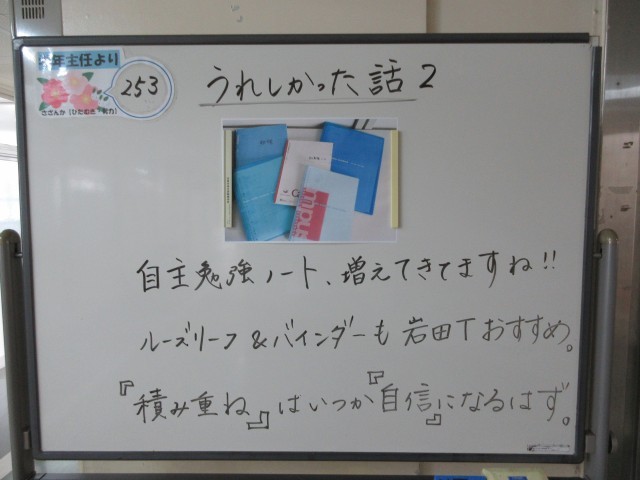 学年主任より
253
さざんか（ひたむき
うれしかった話2
Campus
自主勉強ノート、増えてきてますね!!
ルーズリーフ&バインダーも岩田Tおすすめ。
『積み重ね』はいつか『自信』になるはず。